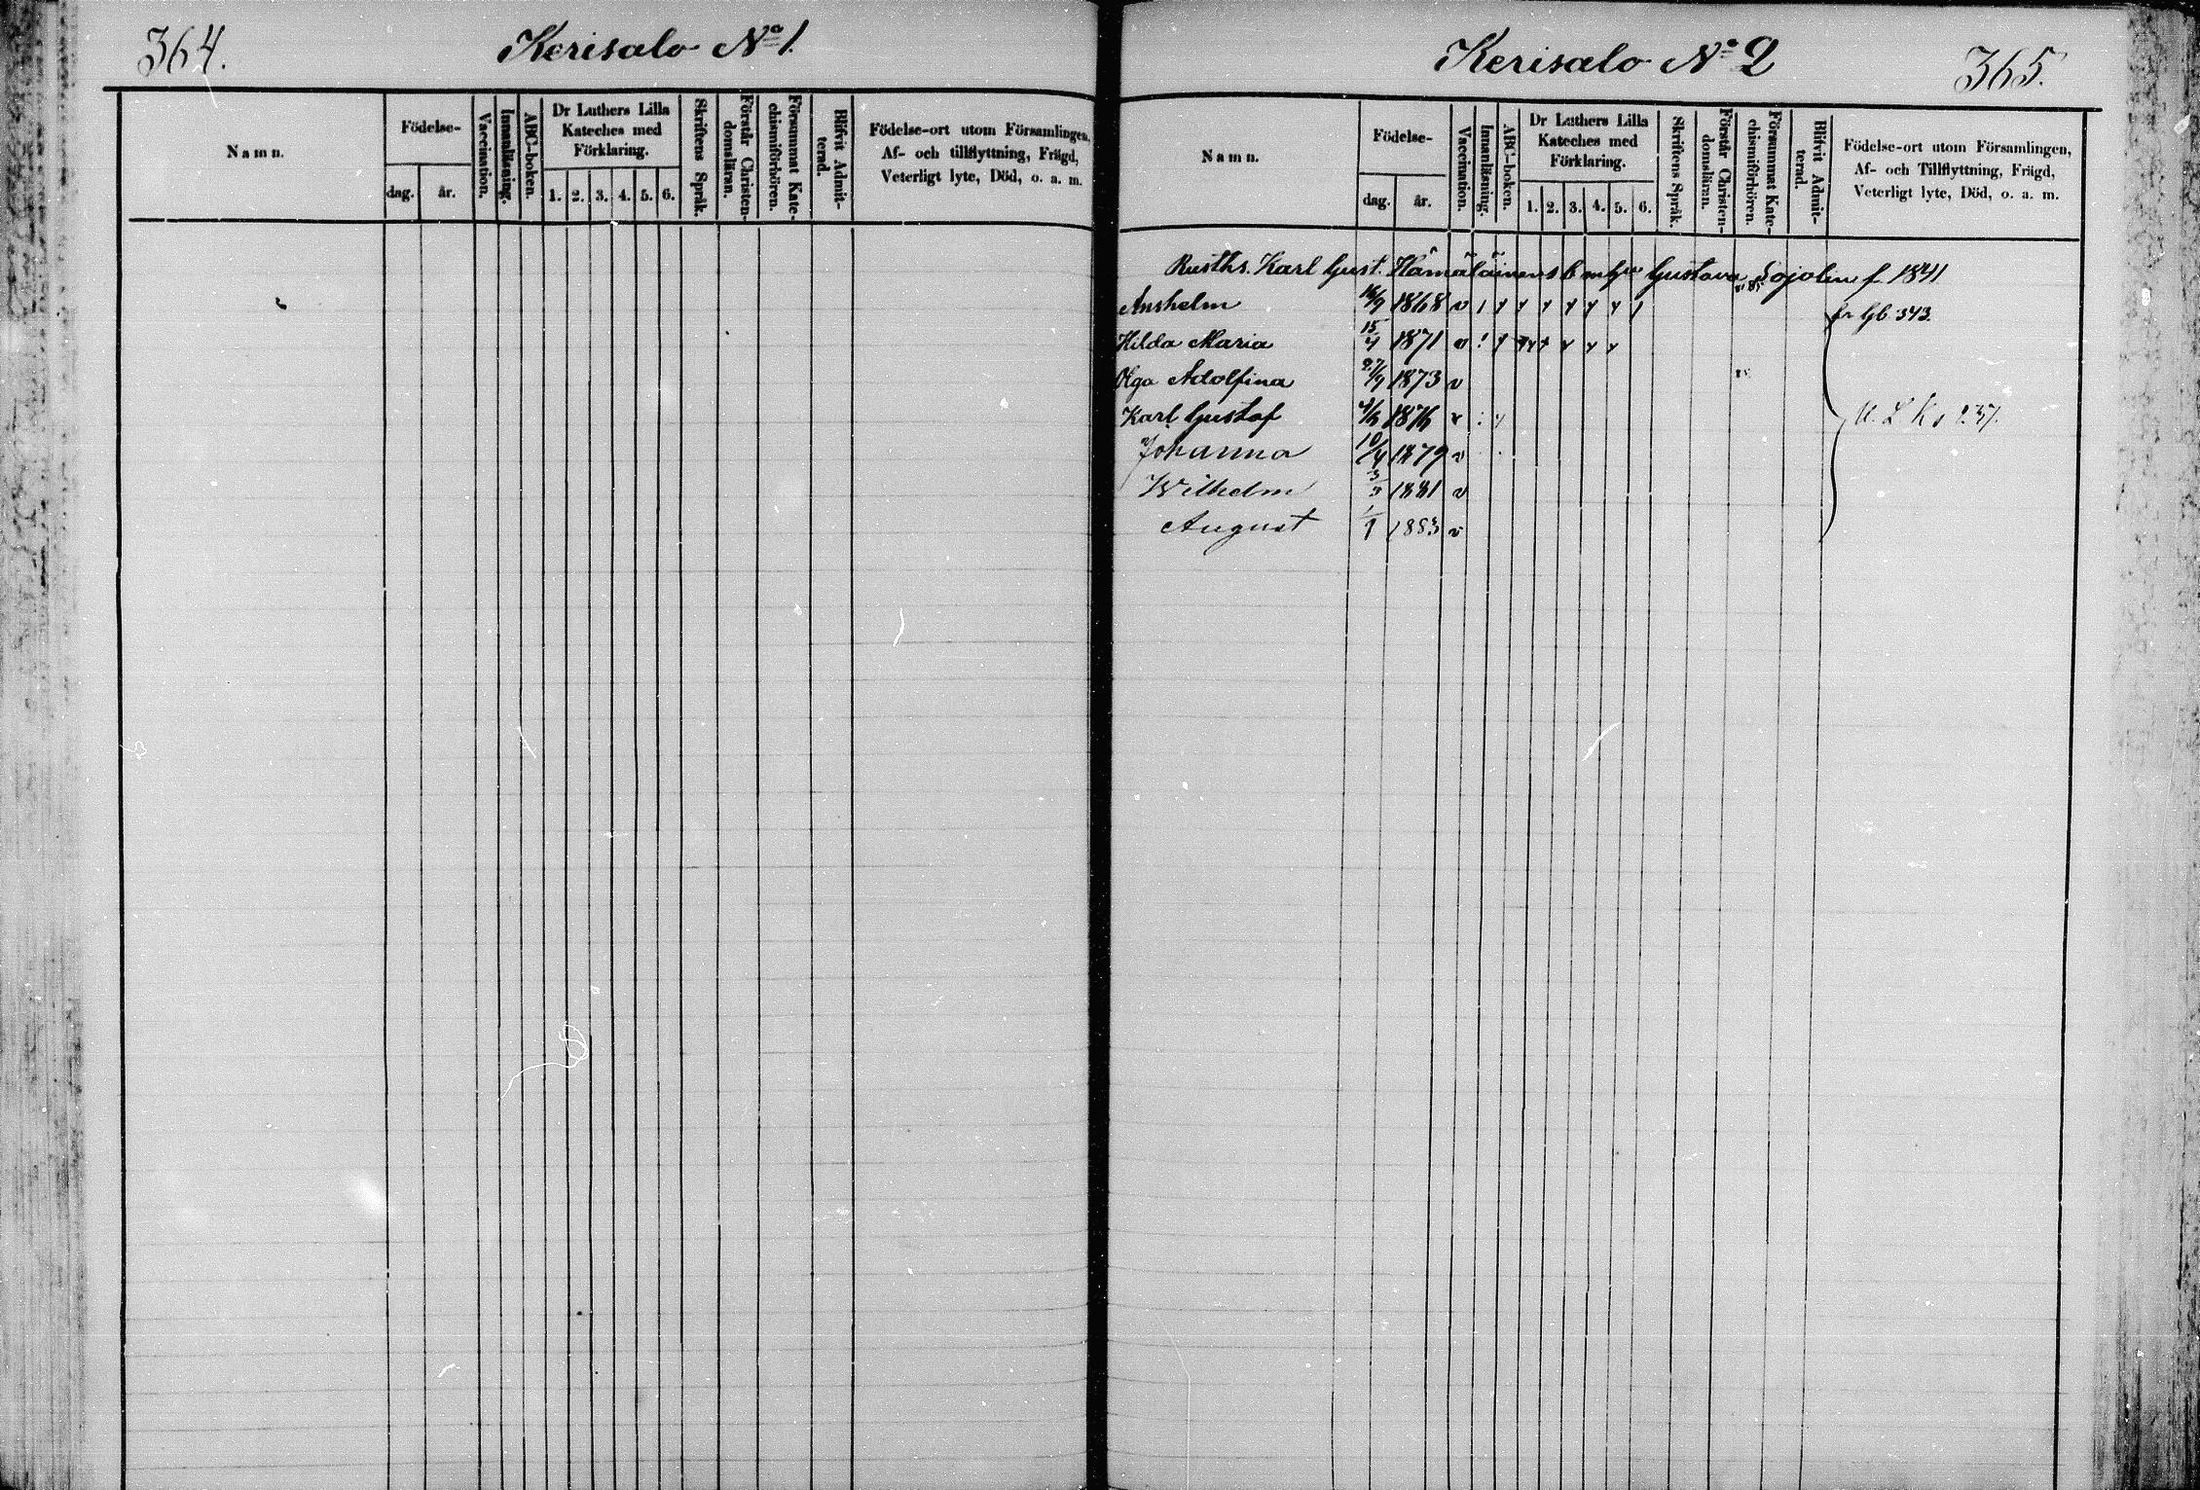 364.
Kerisalo No 1.
Namn.
Födelse-
dag.
år.
Vaccination.
Innanläsning.
ABC-boken.
Dr Luthers Lilla
Kateches med
Förklaring.
1. 2. 3. 4. 5. 6.
Skriftens Språk.
Förstår Christen-
domsläran.
Försummat Kate-
chismiförhören.
Blifvit Admit-
terad.
Födelse-ort utom Församlingen,
Af- och tillflyttning, Frägd,
Veterligt lyte, Död, o. a. m.
Kerisalo No 2
365.
Namn.
Födelse-
dag.
år.
Vaccination.
Innanläsning.
ABC-boken.
Dr Luthers Lilla
Kateches med
Förklaring.
1. 2. 3. 4. 5. 6.
Skriftens Språk.
Förstår Christen-
domsläran.
Försummat Kate-
chismiförhören.
Blifvit Admit-
terad.
Födelse-ort utom Församlingen,
Af- och Tillflyttning, Frägd,
Veterligt lyte, Död, o. a. m.
Rusths. Karl Gust. Hämäläinens b m h Gustava Sojolin f 1841
Anshelm 16/9 1868 v fr Gb 343.
Hilda Maria 15/4 1871 v
Olga Adolfina 27/9 1873 v
Karl Gustaf 1876 v
Johanna 10/4 1879 v
Wilhelm 3/3 1881 v
August 1/1 1883 v